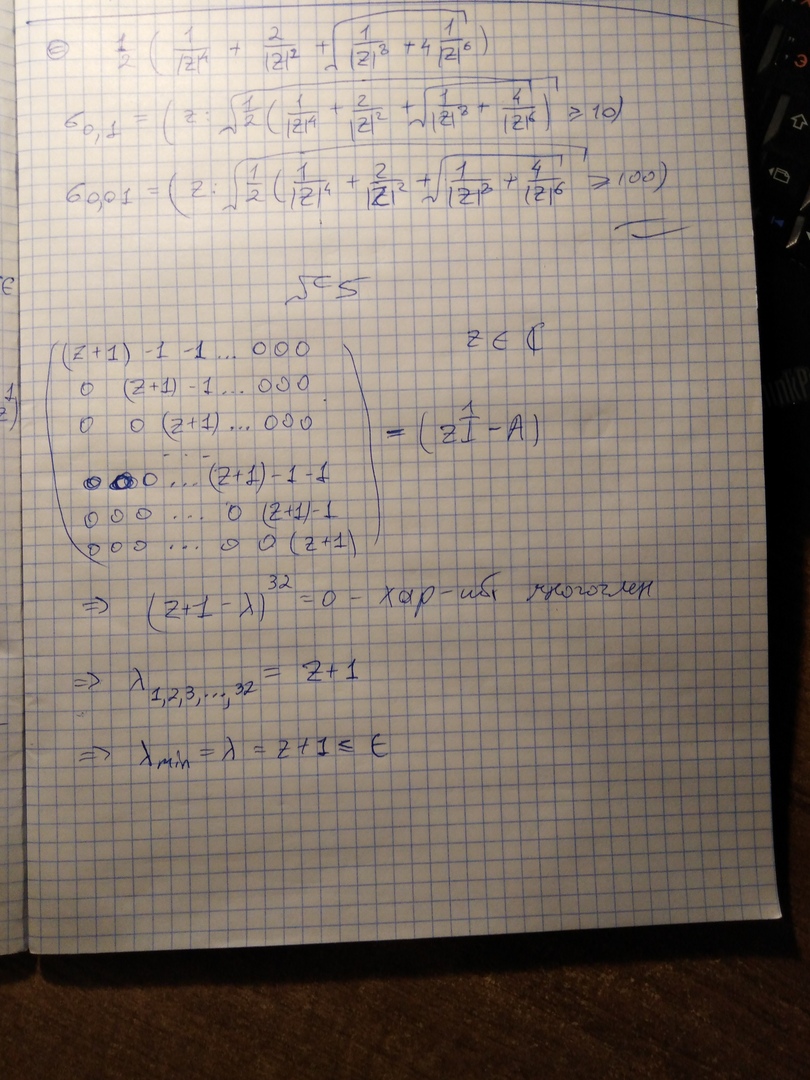 ⊜ 1/2 ( 1/|z|⁴ + 2/|z|² + √(1/|z|⁸ + 4 1/|z|⁶) )
σ₀,₁ = ( z : √(1/2 ( 1/|z|⁴ + 2/|z|² + √(1/|z|⁸ + 4/|z|⁶) )) ⩾ 10 )
σ₀,₀₁ = ( z : √(1/2 ( 1/|z|⁴ + 2/|z|² + √(1/|z|³ + 4/|z|⁶) )) ⩾ 100 )
5
(z+1) -1 -1 ... 0 0 0
z ∈ ℂ
0 (z+1) -1 ... 0 0 0
0 0 (z+1) ... 0 0 0
= (z I - A)
. . .
0 0 0 ... (z+1) -1 -1
0 0 0 ... 0 (z+1) -1
0 0 0 ... 0 0 (z+1)
⇒ (z+1-λ)³² = 0 - хар-ий многочлен
⇒ λ₁,₂,₃,...,₃₂ = z+1
⇒ λmin = λ = z+1 ≤ ϵ